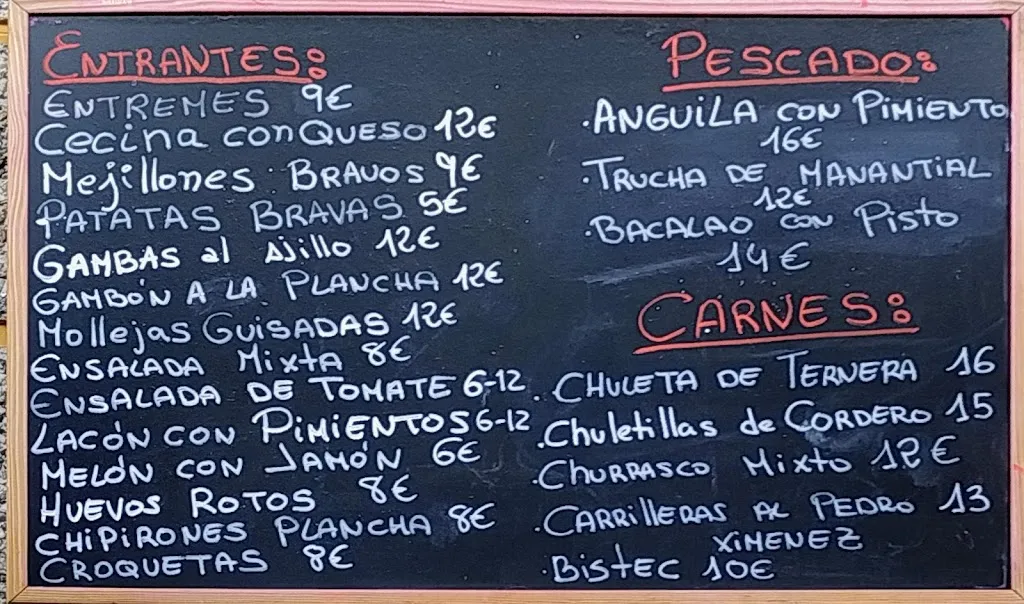 ENTRANTES:
ENTREMES 9€
Cecina con QUESO 12€
Mejillones BRAVOS 9€
PATATAS BRAVAS 5€
GAMBAS al Ajillo 12€
GAMBÓN A LA PLANCHA 12€
Mollejas GUISADAS 12€
ENSALADA Mixta 8€
ENSALADA DE TOMATE 6-12
LACÓN CON PIMIENTOS 6-12
MELÓN CON JAMÓN 6€
HUEVOS ROTOS 8€
CHIPIRONES PLANCHA 8€
CROQUETAS 8€
PESCADO:
.ANGUILA CON PIMIENTO
16€
.TRUCHA DE MANANTIAL
12€
.BACALAO CON Pisto
14€
CARNES:
.CHULETA DE TERNERA 16
.Chuletillas de CORDERO 15
.CHURRASCO Mixto 12€
.CARRILLERAS AL PEDRO 13
XIMENEZ
.Bistec 10€